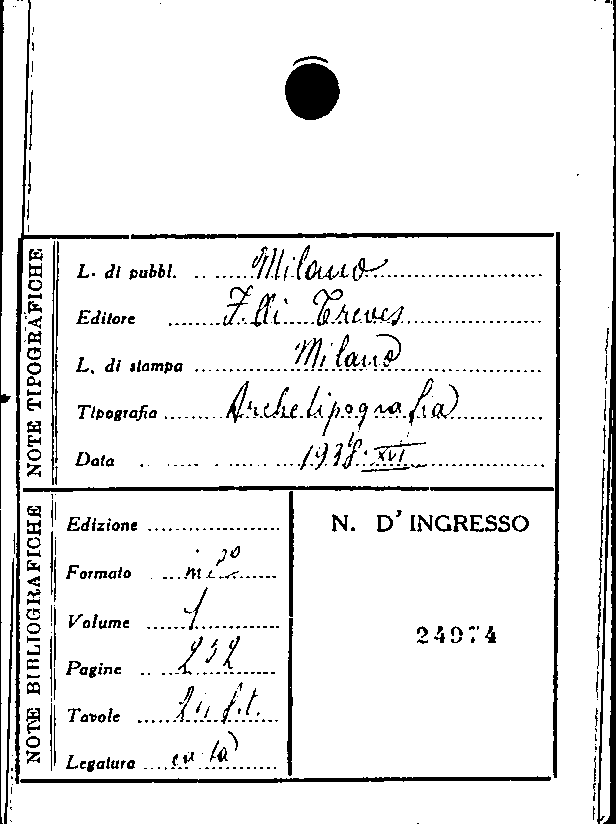 NOTE TIPOGRAFICHE
L. di pubbl. Milano
Editore F.lli Treves
L. di stampa Milano
Tipografia Archetipografia
Data 1938·XVI
NOTE BIBLIOGRAFICHE
Edizione
Formato in
Volume 1
Pagine 232
Tavole f.t.
Legatura
N. D' INGRESSO
24974